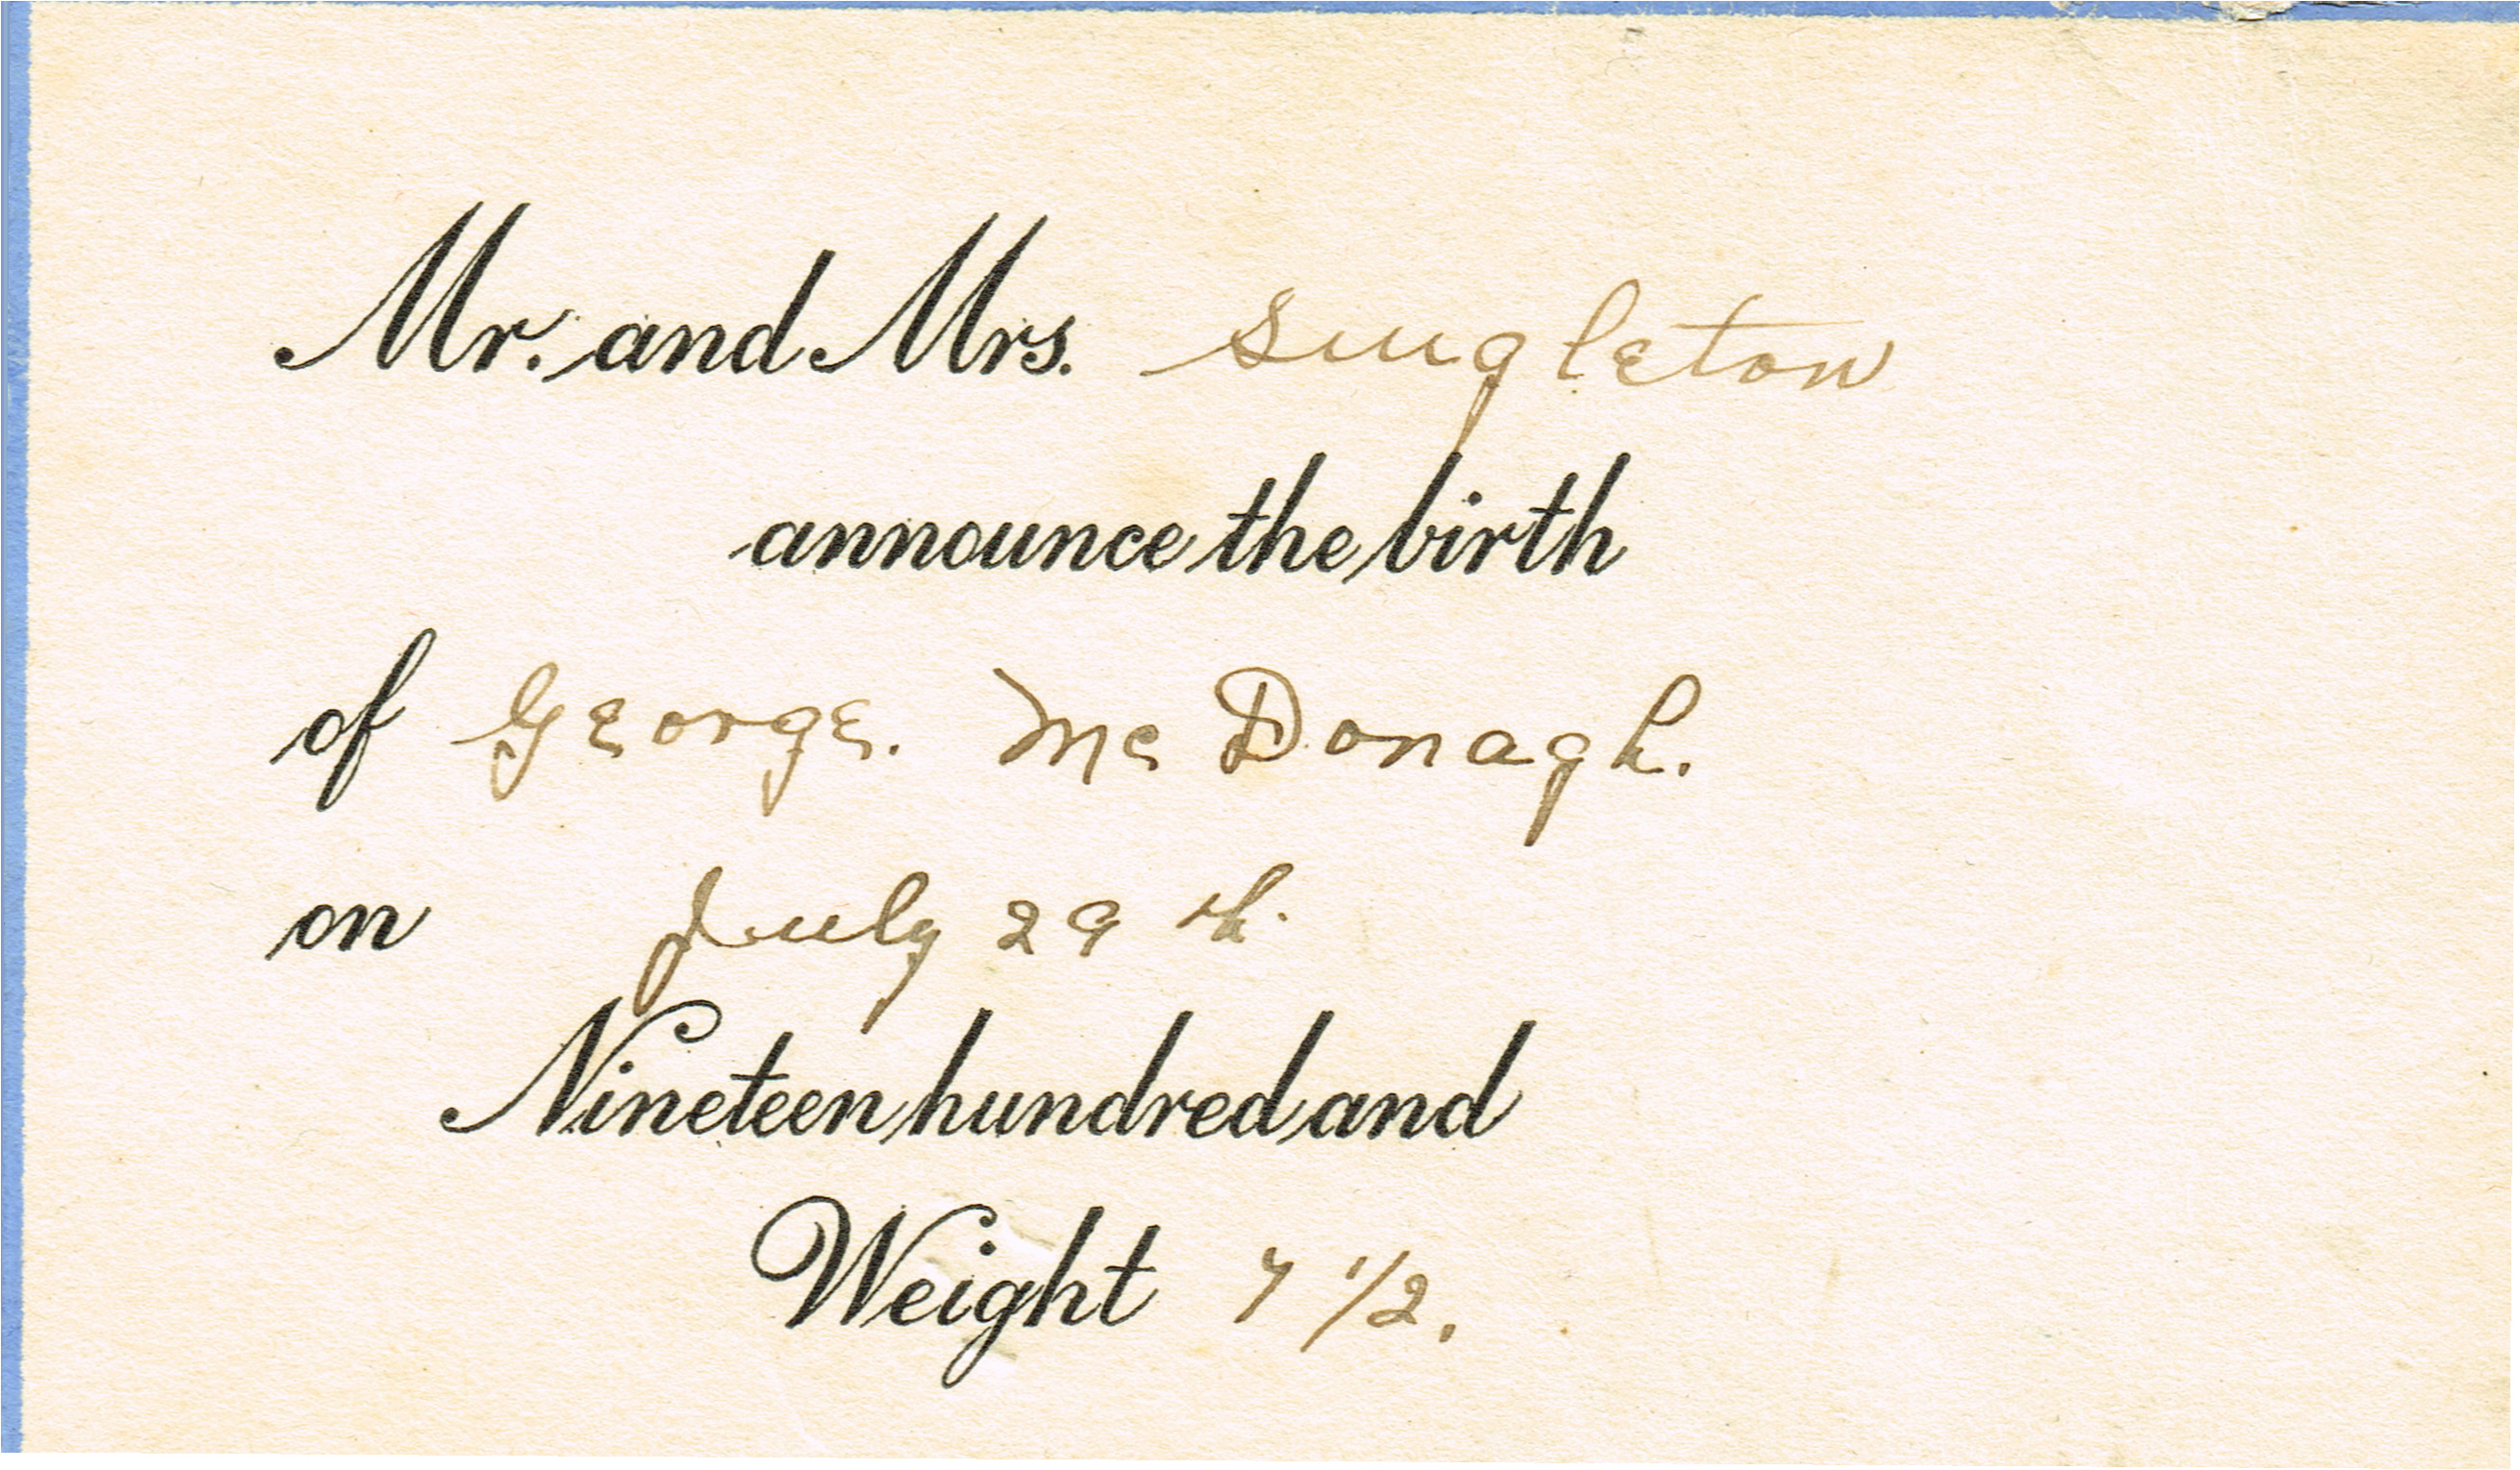 Mr. and Mrs. Singleton
announce the birth
of George. Mc Donagh.
on July 29 th.
Nineteen hundred and
Weight 7 1/2.